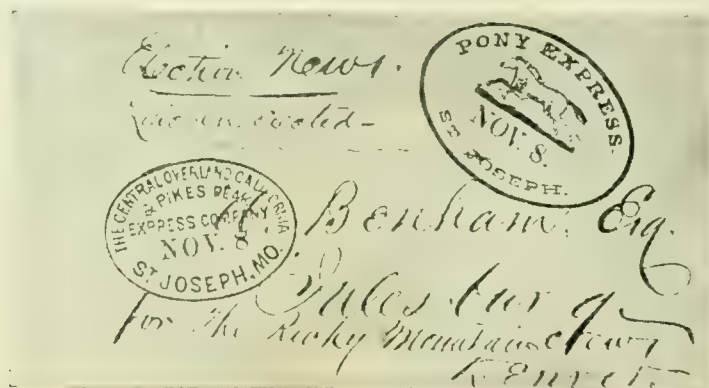 Election News.
Lincoln elected -
PONY EXPRESS.
NOV. 8.
ST JOSEPH.
THE CENTRAL OVERLAND CALIFORNIA
& PIKES PEAK
EXPRESS COMPANY
NOV. 8
ST JOSEPH, MO.
Benham, Esq.
Julesburg
for the Rocky Mountain News
Denver